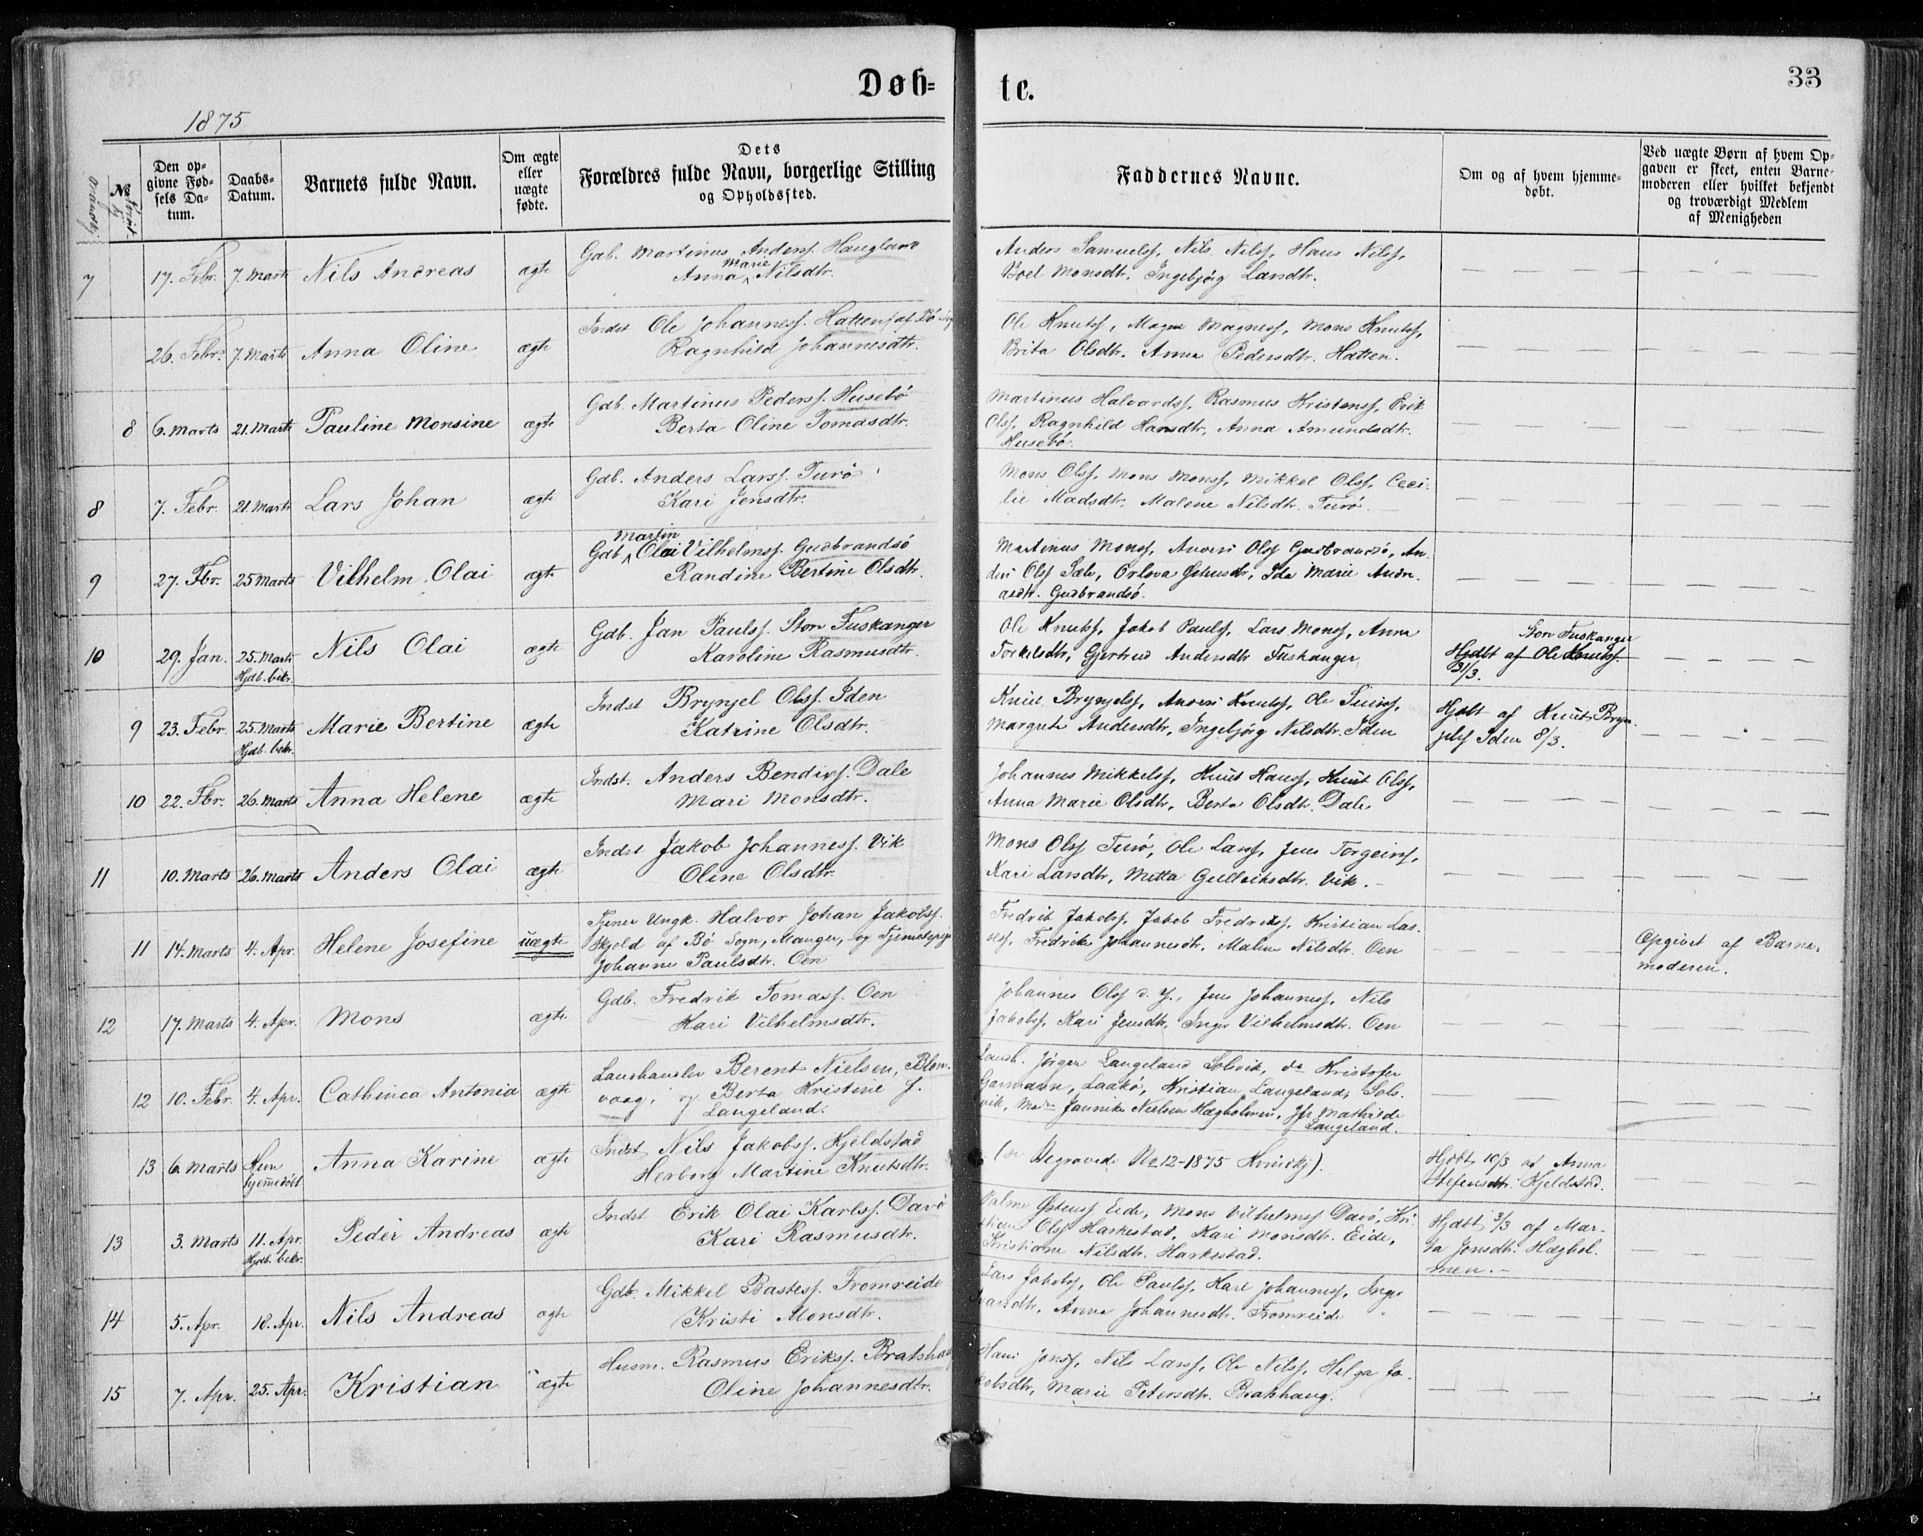 Døb=
te.
33
1875
№
Den op=
givne Fød=
sels Da=
tum.
Daabs=
Datum.
Barnets fulde Navn.
Om ægte
eller
uægte
fødte.
Dets
Forældres fulde Navn, borgerlige Stilling
og Opholdssted.
Faddernes Navne.
Om og af hvem hjemme=
døbt.
Ved uægte Børn af hvem Op=
gaven er skeet, enten Barne=
moderen eller hvilket bekjendt
og troværdigt Medlem
af Menigheden
7 17. Febr. 7. Marts Nils Andreas ægte
Gab. Martinus Anderss. Haugland
Anna Marie Nilsdtr.
Anders Samuelss, Nils Nilss, Hans Nilss,
Boel Monsdtr. Ingebjørg Larsdtr.
26. Febr. 7. Marts Anna Oline ægte
Indst Ole Johanness. Hatten, af Bø Sogn
Ragnhild Johannesdtr.
Ole Knutss, Magne Magness, Mons Knutss,
Brita Olsdtr. Anna Pedersdtr. Hatten.
8 6. Marts 21. Marts Pauline Monsine ægte
Gdb. Martinus Pederss. Husebø
Berta Oline Tomasdtr.
Martinus Halvardss, Rasmus Kristenss, Erik
Olss, Ragnhild Hansdtr, Anna Amundsdtr.
Husebø
8 7. Febr. 21. Marts Lars Johan ægte
Gdb. Anders Larss. Turø
Kari Jensdtr.
Mons Olss, Mons Monss, Mikkel Olss, Ceci-
lie Madsdtr, Malene Nilsdtr. Turø.
9 27. Fbr. 25 Marts Vilhelm Olai ægte
Gdb Martin Olai Vilhelmss. Gudbrandsø
Randine Bertine Olsdtr.
Martinus Monss, Anders Olss Gudbrandsø, An-
ders Olss Sæle, Ida Marie Andre-
asdtr. Gudbrandsø.
10 29. Jan. 25. Marts Nils Olai ægte
Hjdb. bekr.
Gdb. Jan Paulss. Store Fuskanger
Karoline Rasmusdtr.
Ole Knutss, Jakob Paulss, Lars Monss, Anna
Torkelsdtr, Gjertrud Andersdtr Fuskanger
Store Fuskanger
Hjdbt af Ole Knutss.
31/3.
9 23. Febr 25. Marts Marie Bertine ægte
Hjdb. bekr.
Indst Brynjel Olss. Iden
Katrine Olsdtr.
Knut Brynjelss, Anders Knutss, Ole
Margrete Andersdtr, Ingebjørg Nilsdtr. Iden
Hjdbt af Knut Bryn-
jelss Iden 8/3.
10 22. Fbr. 26. Marts Anna Helene ægte
Indst. Anders Bendixs. Dale
Mari Monsdtr.
Johannes Mikkelss, Knut Hanss, Knut Olss,
Anna Marie Olsdtr, Berta Olsdtr. Dale
11 10. Marts 26. Marts Anders Olai ægte
Indst Jakob Johanness. Vik
Oline Olsdtr.
Mons Olss Turø, Ole Larss, Jens Torgeirss,
Kari Larsdtr, Mitta Gulleiksdtr. Vik.
11 14. Marts 4. Apr. Helene Josefine uægte
Tjener Ungk. Halvor Johan Jakobss.
Skjold af Bø Sogn, Manger, og Tjenestepige
Johanne Paulsdtr. Oen
Fredrik Jakobss, Jakob Fredrikss, Kristian Las-
sess, Fredrike Johannesdtr, Malene Nilsdtr. Oen
Opgivet af Barne-
moderen.
12 17. Marts 4. Apr. Mons ægte
Gdb. Fredrik Tomass. Oen
Kari Vilhelmsdtr.
Johannes Olss d. y., Jens Johanness, Nils
Jakobss, Kari Jensdtr, Inger Vilhelmsdtr. Oen
12 10. Febr. 4. Apr. Cathinca Antonia ægte
Landhandler Berent Nielsen, Blom-
vaag, og Berta Kristine f.
Langeland.
Landh. Jørgen Langeland Solvik, do Kristofer
Garmann, Laskø, Kristian Langeland, Sol-
vik, Mad. Jannike Nielsen Hægholmen, Jfr Mathilde
Langeland.
13 6. Marts Kun Anna Karine ægte
hjemmedøbt
Indst Nils Jakobss. Kjeldstad
Herborg Martine Knutsdtr.
(se Begravede No 12-1875 Kvindkj).
Hjdbt 10/3 af Anna
Stefensdtr Kjeldstad.
13 3. Marts 11. Apr. Peder Andreas ægte
Hjdb. bekr.
Indst Erik Olai Karlss. Davø
Kari Rasmusdtr.
Eide, Mons Vilhelmss Davø, Kri-
stian Olss Harkestad, Kari Monsdtr. Eide,
Kristiane Nilsdtr. Harkestad.
Hjdbt 3/3 af Mar-
ta Jonsdtr. Hæghol-
men.
14 5. Apr. 18. Apr. Nils Andreas ægte
Gdb. Mikkel Bastess. Fromreide
Kristi Monsdtr.
Lars Jakobss, Ole Paulss, Karl Johanness, Inger
Ivarsdtr, Anna Johannesdtr. Fromreide
15 7. Apr. 25. Apr. Kristian ægte
Husm. Rasmus Erikss. Bratshaug
Oline Johannesdtr.
Hans Jonss, Nils Larss, Ole Nilss, Helga Ja-
kobsdtr, Marie Petersdtr. Bratshaug.